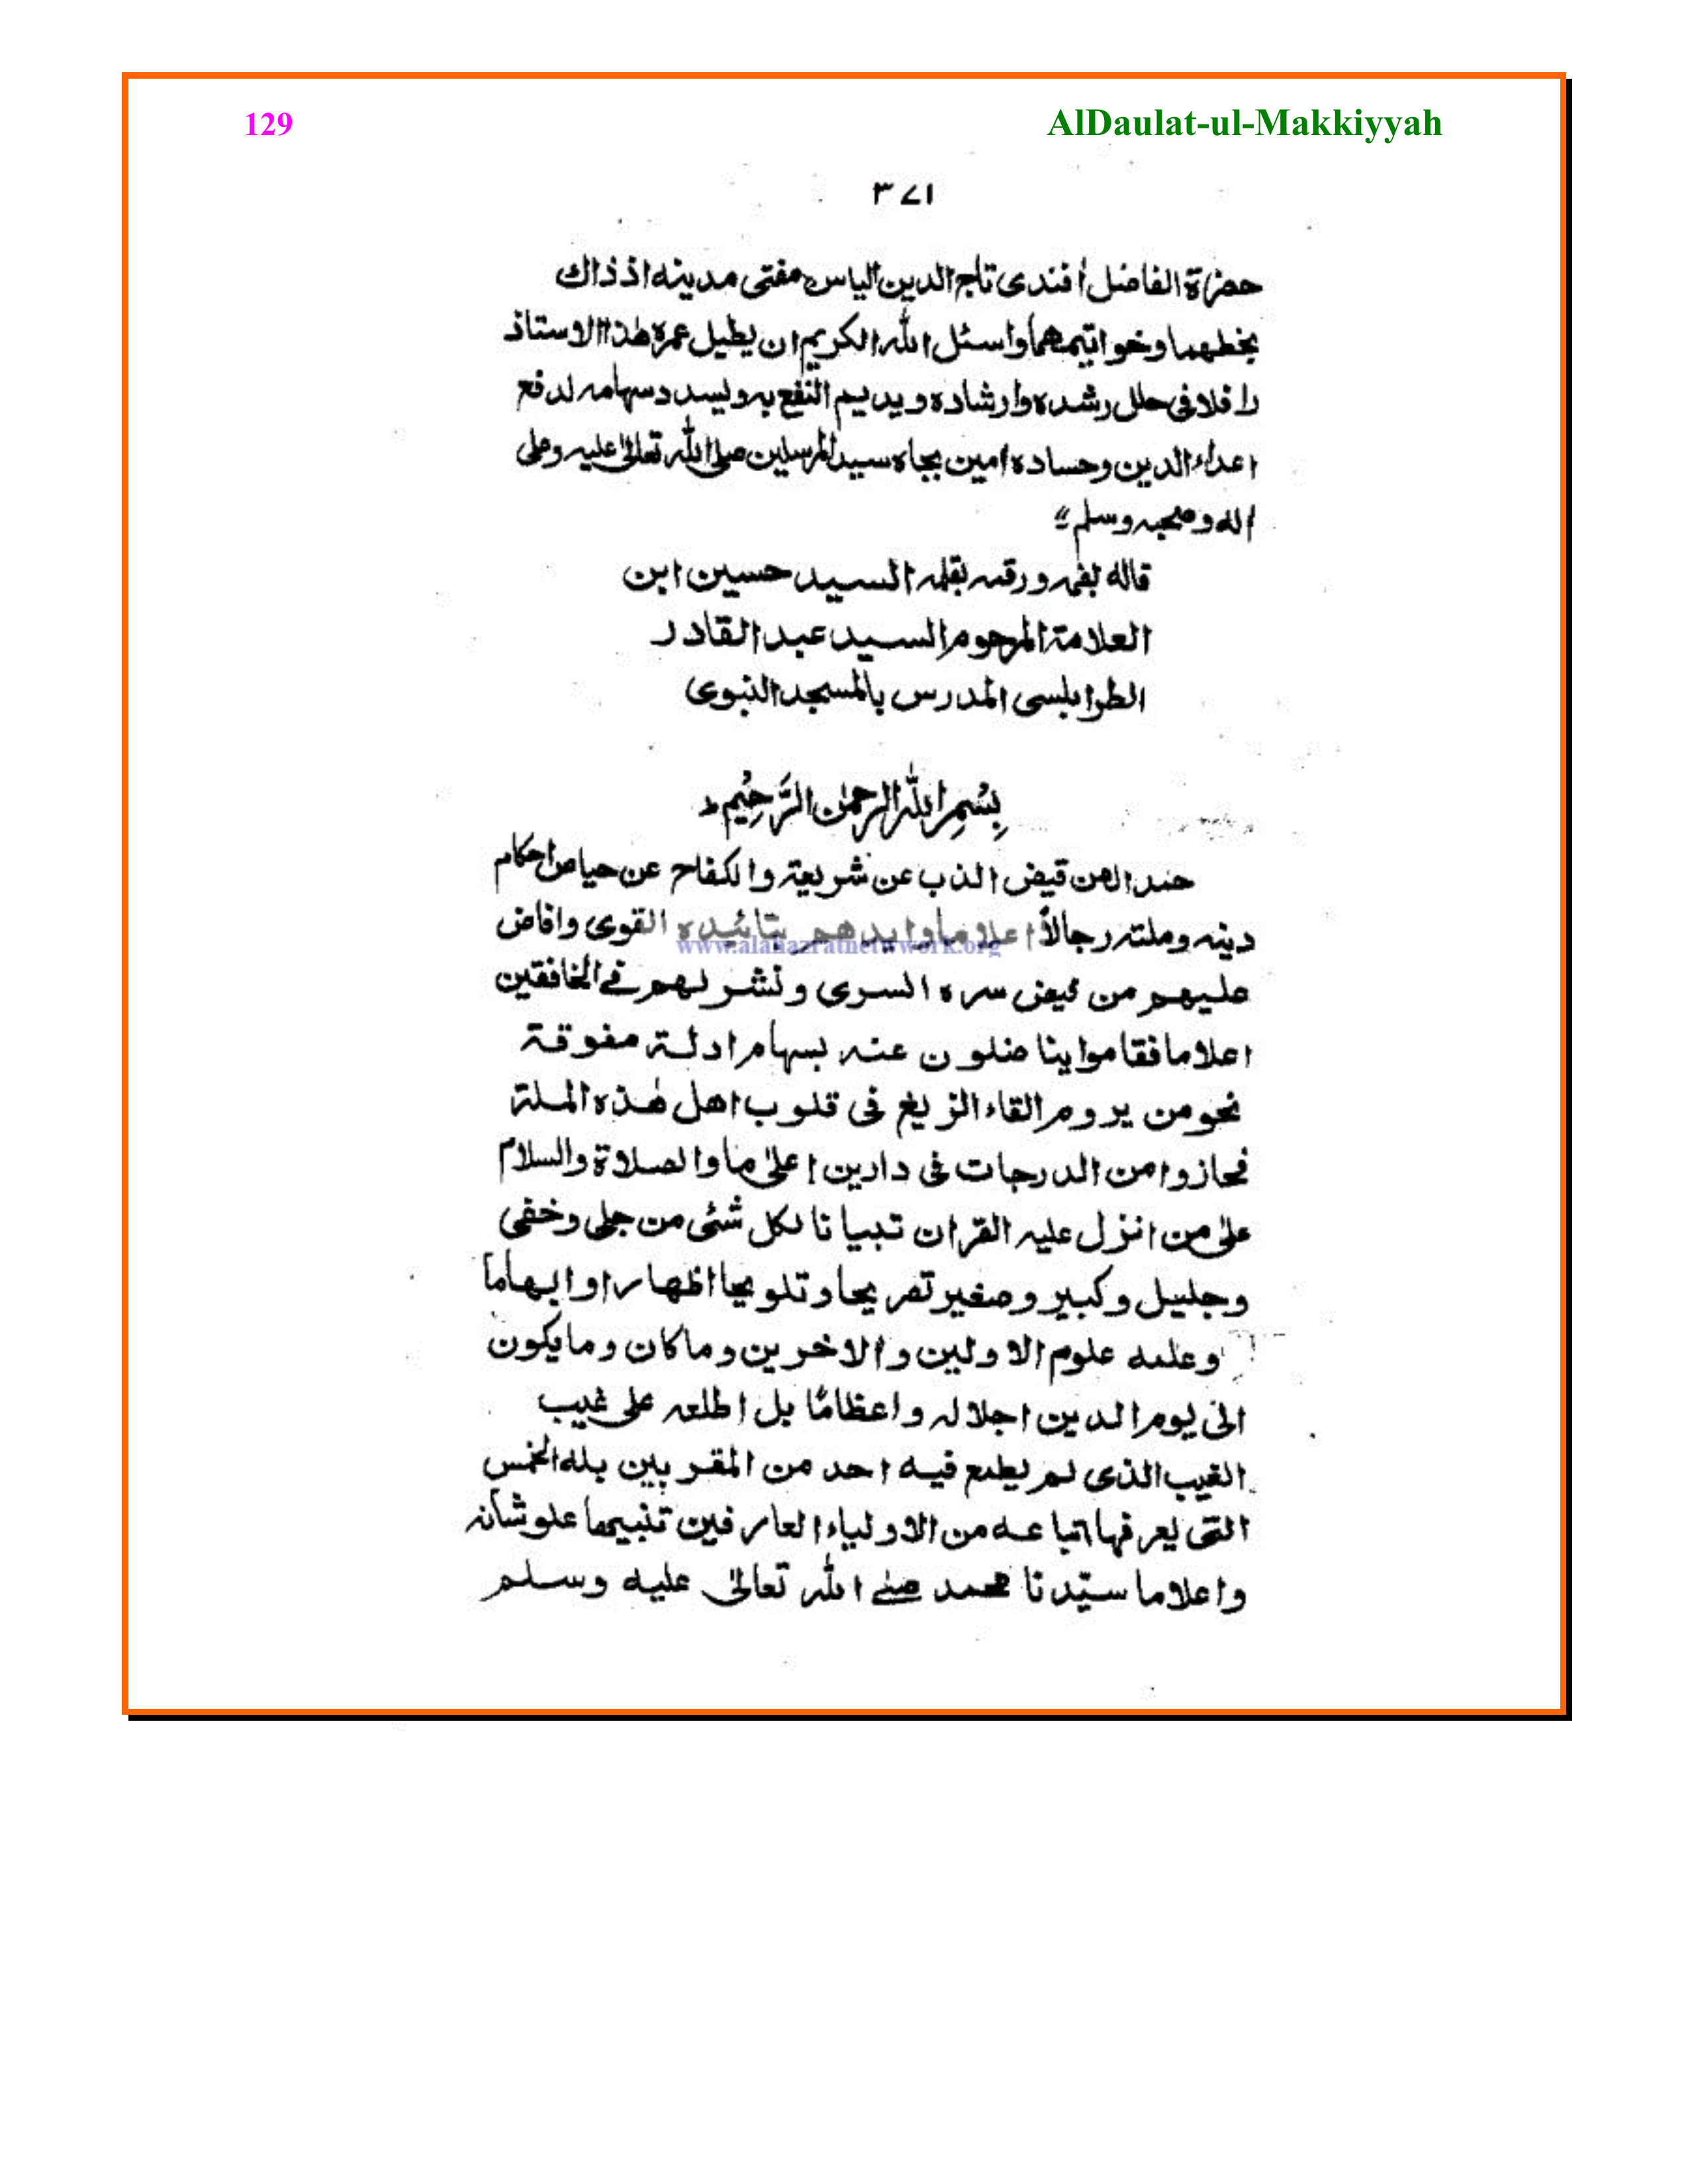 129 AlDaulat-ul-Makkiyyah
٣٧١
حضرة الفاضل أفندى تاج الدين الياس مفتى مدينه اذ ذاك
بخطهما وخواتيمهما واسئل الله الكريم ان يطيل عمره هذا الاستاذ
رافلا فى حلل رشده وارشاده ويديم النفع به ويسدد سهامه لدفع
اعداء الدين وحساده امين بجاه سيد المرسلين صلى الله تعالىٰ عليه وعلى
اله وصحبه وسلم"
قاله بفمه ورقمه بقلمه السيد حسين ابن
العلامة المرحوم السيد عبد القادر
الطرابلسى المدرس بالمسجد النبوى
بِسْمِ الله الرحمٰن الرَّحِيْمِ
حمدا لمن قيض الذب عن شريعته والكفاح عن حياض احكام
دينه وملته رجالاً اعلاما وايدهم بتائيده القوى وافاض
عليهم من فيض سره السرى ونشر لهم فے الخافقين
اعلاما فقاموا يناضلون عنه بسهام ادلة مفوقة
نحو من يروم القاء الزيغ فى قلوب اهل هٰذه الملة
فحازوا من الدرجات فى دارين اعلىٰ ما والصلاة والسلام
علىٰ من انزل عليه القران تبيانا لكل شئى من جلى وخفى
وجليل وكبير وصغير تصريحا وتلويحا اظهارا وابهاما
وعلمه علوم الاولين والاخرين وماكان ومايكون
الىٰ يوم الدين اجلاله واعظامًا بل اطلعه على غيب
الغيب الذى لم يطمع فيه احد من المقربين بله الخمس
التى يعرفها اتباعه من الاولياء العارفين تنبيها علوشانه
واعلاما سيّدنا محمد صلے الله تعالىٰ عليه وسلم
www.alahazratnetwork.org